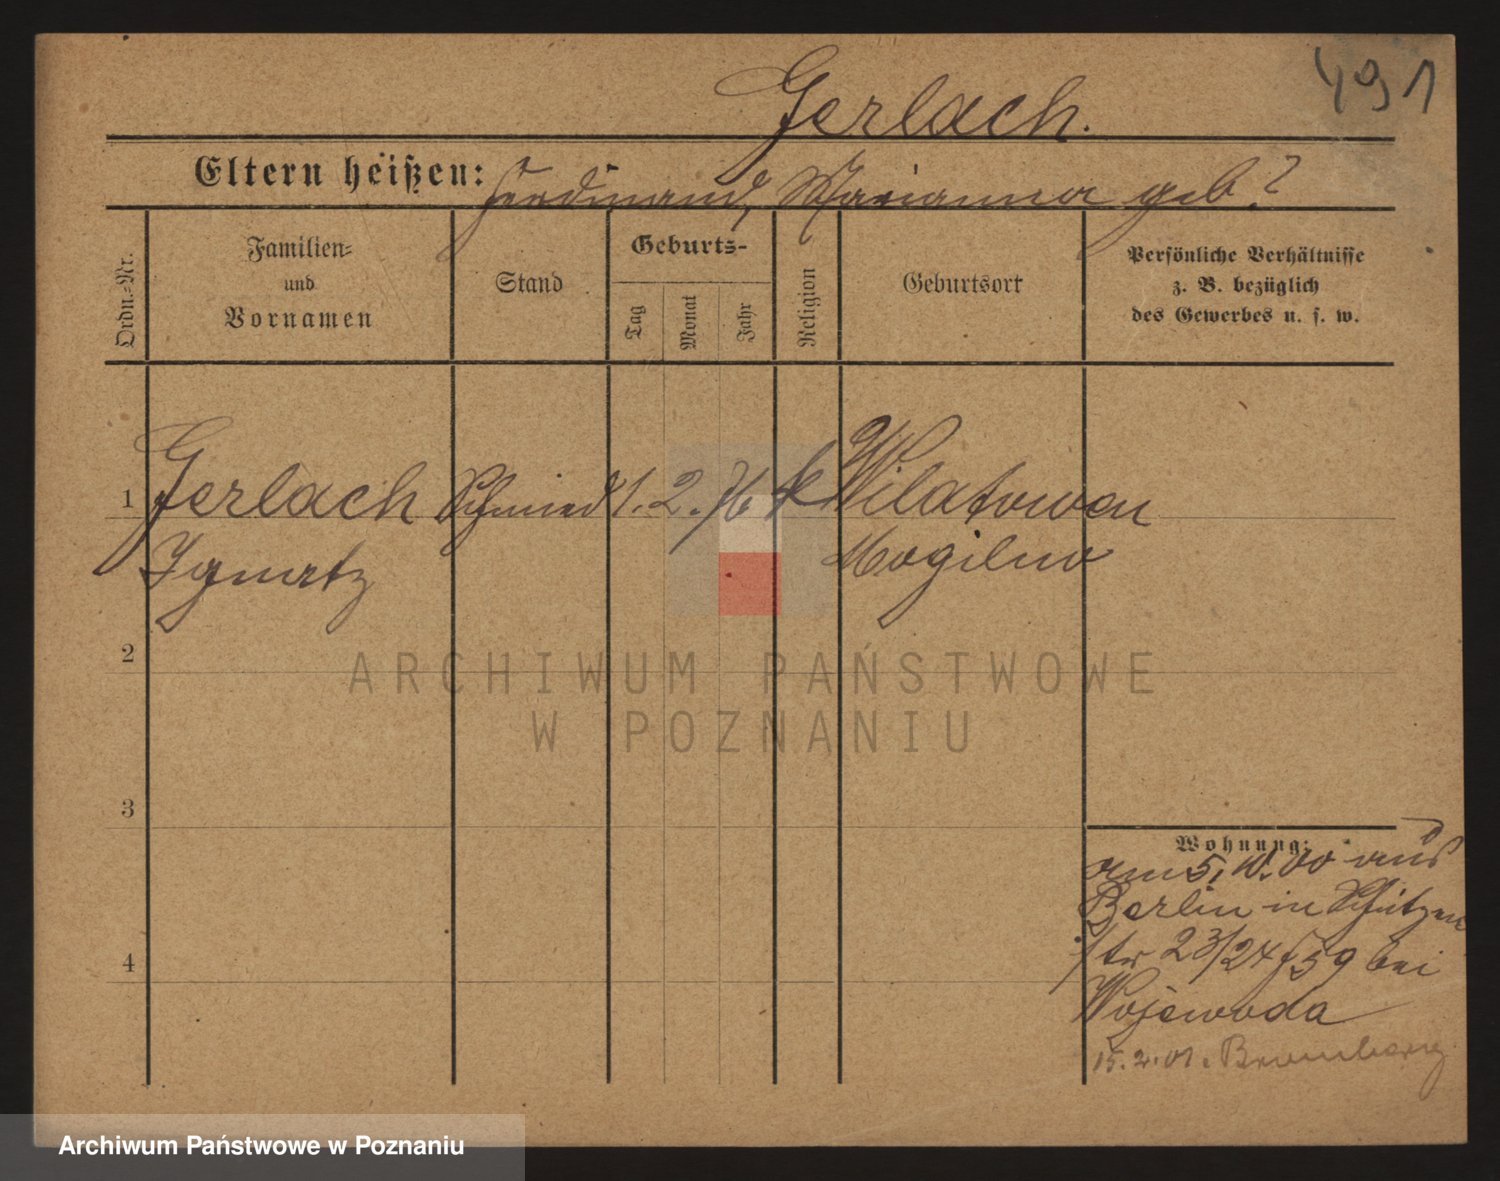 491
Gerlach.
Eltern heißen: Ferdinand, Marianna geb. ?
Ordn.-Nr.
Familien=
und
Vornamen
Stand
Geburts-
Tag
Monat
Jahr
Religion
Geburtsort
Persönliche Verhältnisse
z. B. bezüglich
des Gewerbes u. s. w.
1 Gerlach Schmied 1. 2. 76 k Wilatowen
Ignatz Mogilno
2
ARCHIWUM PAŃSTWOWE
W POZNANIU
3
Wohnung:
am 5. 10. 00 aus
Berlin in Schützen
4 str 23/24 bei
Wojewoda
15. 2. 01. Bromberg
Archiwum Państwowe w Poznaniu